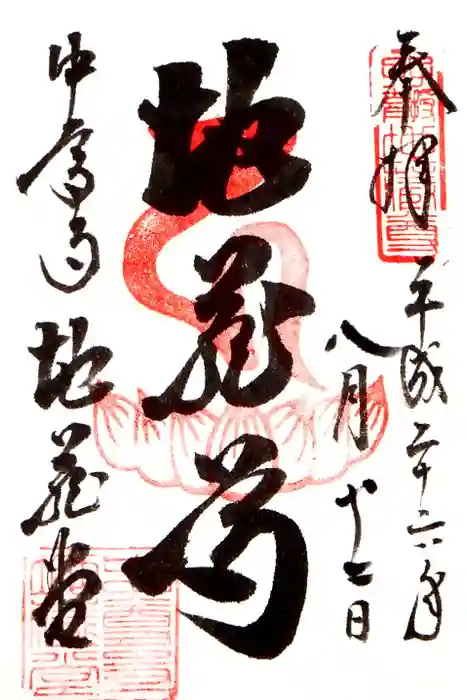 奉拝
平成二十六年
八月十 日
地蔵尊
中尊寺
地蔵堂